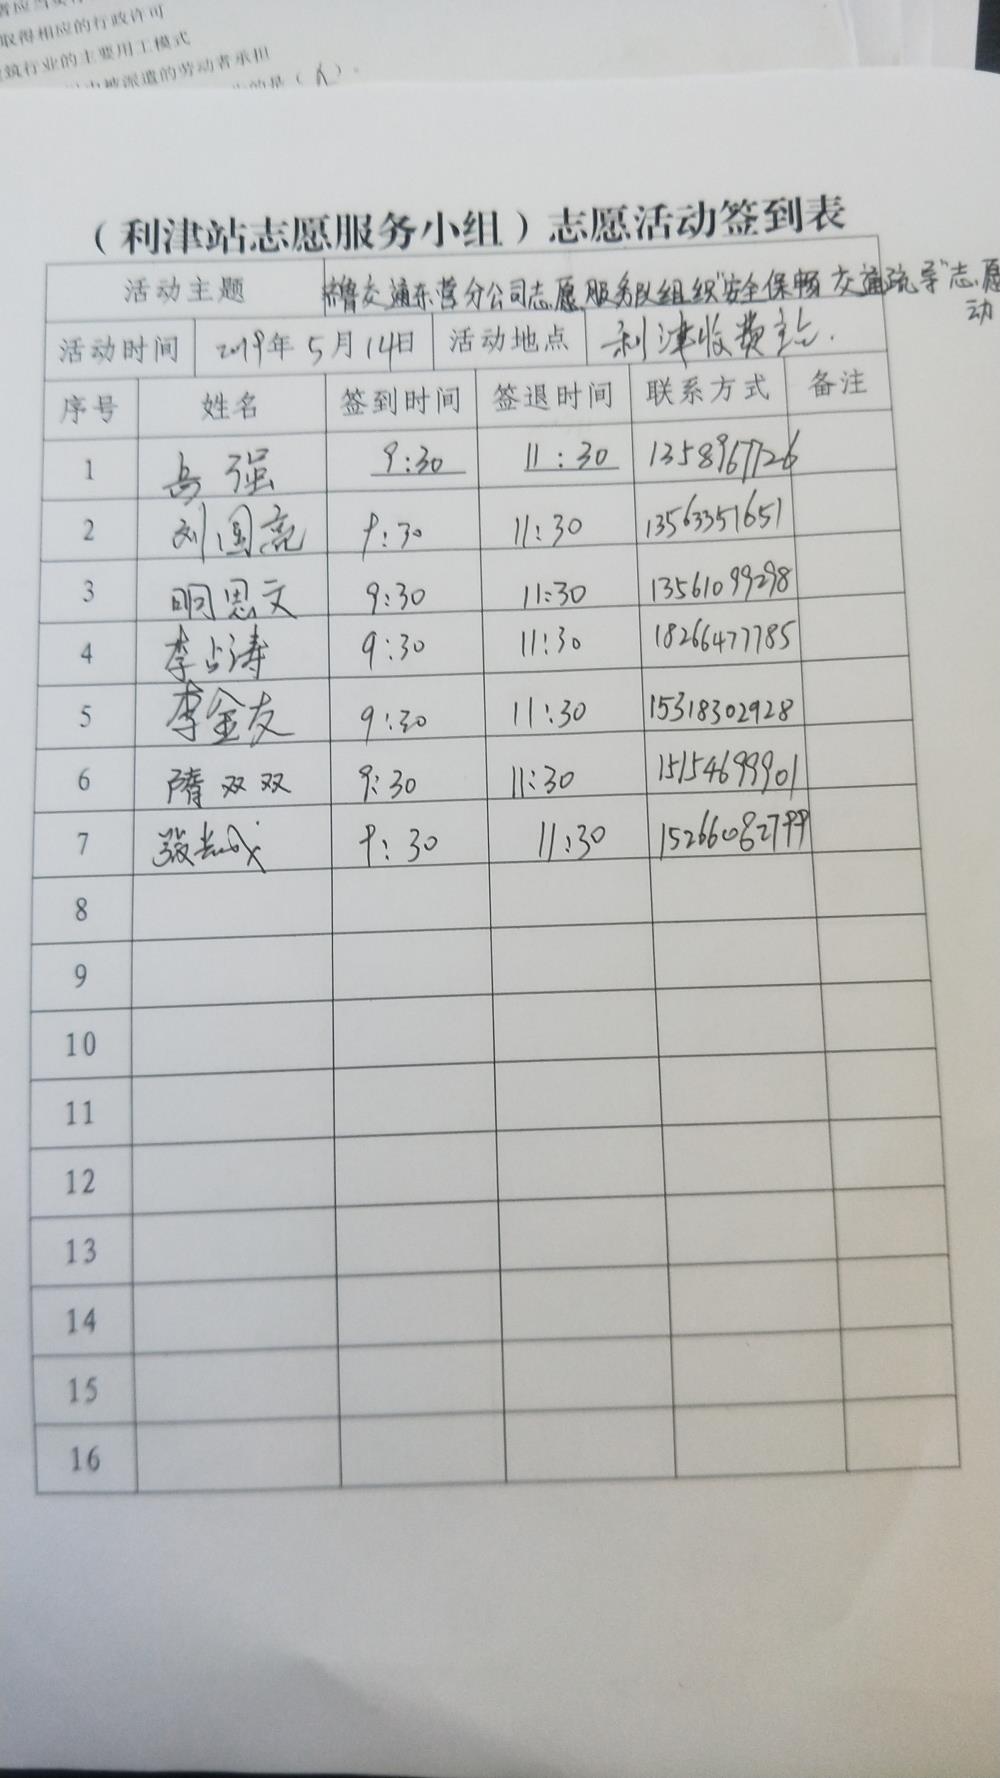 取得相应的行政许可
筑行业的主要用工模式
被派遣的劳动者承担
的是（ ）。
（利津站志愿服务小组）志愿活动签到表
活动主题 齐鲁交通东营分公司志愿服务队组织"安全保畅 交通疏导"志愿
动
活动时间 2019年5月14日 活动地点 利津收费站.
序号 姓名 签到时间 签退时间 联系方式 备注
1 岳强 9:30 11:30 13589677726
2 刘国亮 9:30 11:30 13563351651
3 明思文 9:30 11:30 13561099298
4 李占涛 9:30 11:30 18266477785
5 李金友 9:30 11:30 15318302928
6 隋双双 9:30 11:30 15154699901
7 9:30 11:30 15266082799
8
9
10
11
12
13
14
15
16